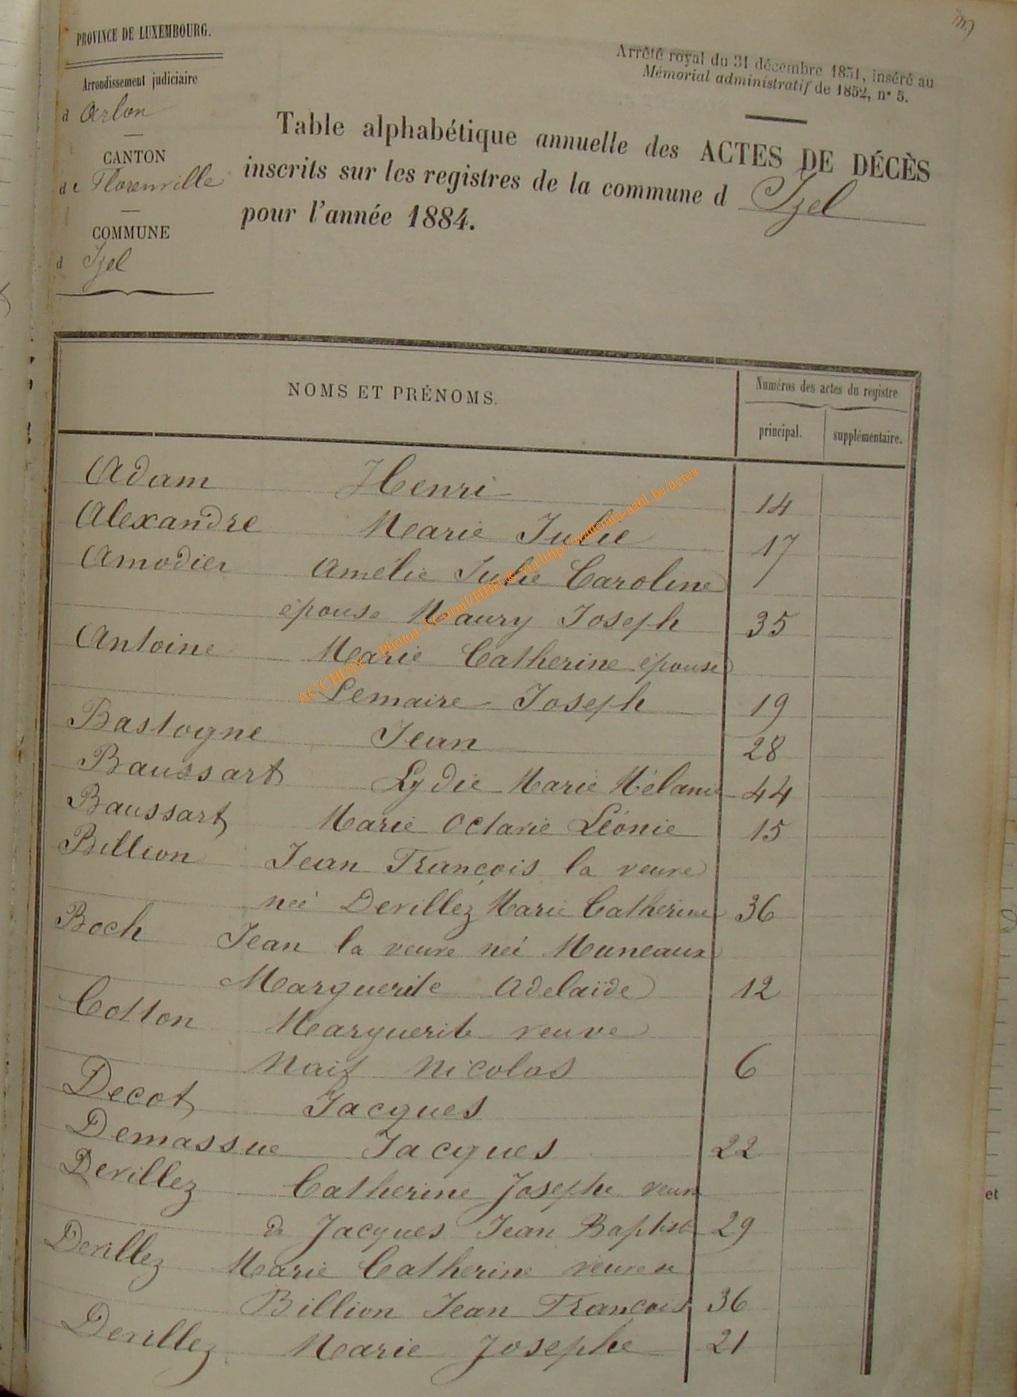 PROVINCE DE LUXEMBOURG.
Arrondissement judiciaire
d Arlon
CANTON
de Florenville
COMMUNE
d Izel
Arrêté royal du 31 décembre 1851, inséré au
Mémorial administratif de 1852, n° 5.
Table alphabétique annuelle des ACTES DE DÉCÈS
inscrits sur les registres de la commune d Izel
pour l'année 1884.
NOMS ET PRÉNOMS.
Numéros des actes du registre
principal. supplémentaire.
Adam Henri 14
Alexandre Marie Julie 17
Amodier Amélie Julie Caroline
épouse Maury Joseph 35
Antoine Marie Catherine épouse
Lemaire Joseph 19
Bastogne Jean 28
Baussart Lydie Marie Mélanie 44
Baussart Marie Octavie Léonie 15
Billion Jean François la veuve
née Devillez Marie Catherine 36
Boch Jean la veuve née Muneaux
Marguerite Adelaïde 12
Cotton Marguerite veuve
Naiz Nicolas 6
Decot Jacques
Demassue Jacques 22
Devillez Catherine Josephe veuve
de Jacques Jean Baptiste 29
Devillez Marie Catherine veuve de
Billion Jean François 36
Devillez Marie Josephe 21
et